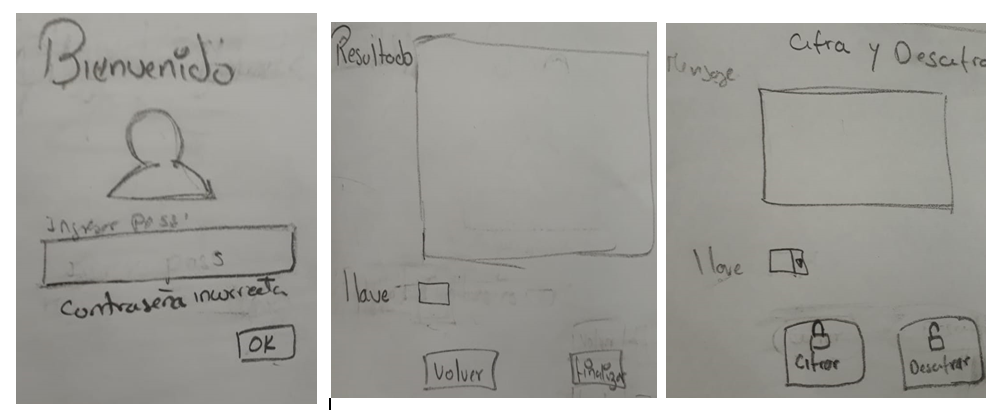 Bienvenido
Ingresar pass
pass
Contraseña incorrecta
OK
Resultado
llave
Volver
Finalizar
Cifra y Descifra
Mensaje
llave
Cifrar
Descifrar